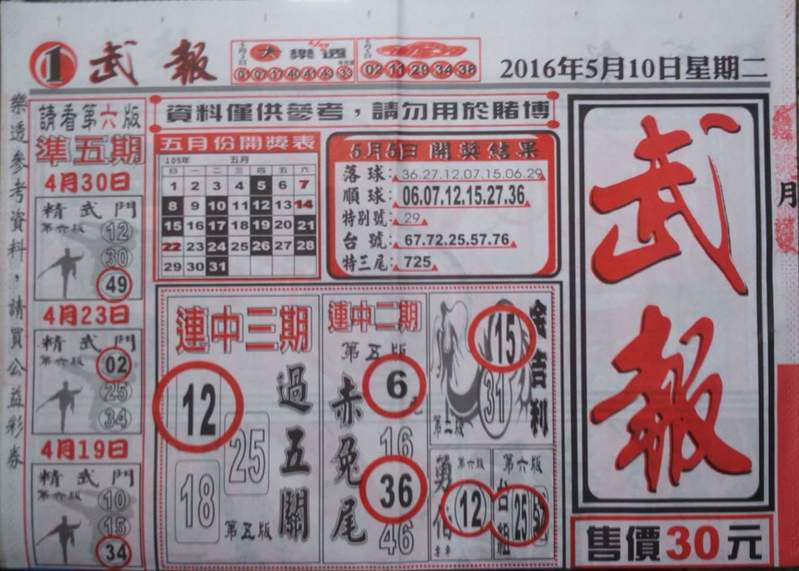 1 武報
大樂透
02 11 29 34 38
2016年5月10日星期二
樂透參考資料，請買公益彩券
請看第六版
準五期
4月30日
精武門
第六版
12
30
49
4月23日
精武門
第六版
02
25
34
4月19日
精武門
第六版
10
15
34
資料僅供參考，請勿用於賭博
五月份開獎表
105年 五月
日 一 二 三 四 五 六
1 2 3 4 5 6 7
8 9 10 11 12 13 14
15 16 17 18 19 20 21
22 23 24 25 26 27 28
29 30 31
5月5日 開獎結果
落球：36.27.12.07.15.06.29
順球：06.07.12.15.27.36
特別號：29
台號：67.72.25.57.76
特三尾：725
連中三期
過五關
第五版
12
25
18
連中二期
第五版
赤兔尾
6
16
36
46
15
31
吉利
12
第六版
台組
25
武報
售價30元
月